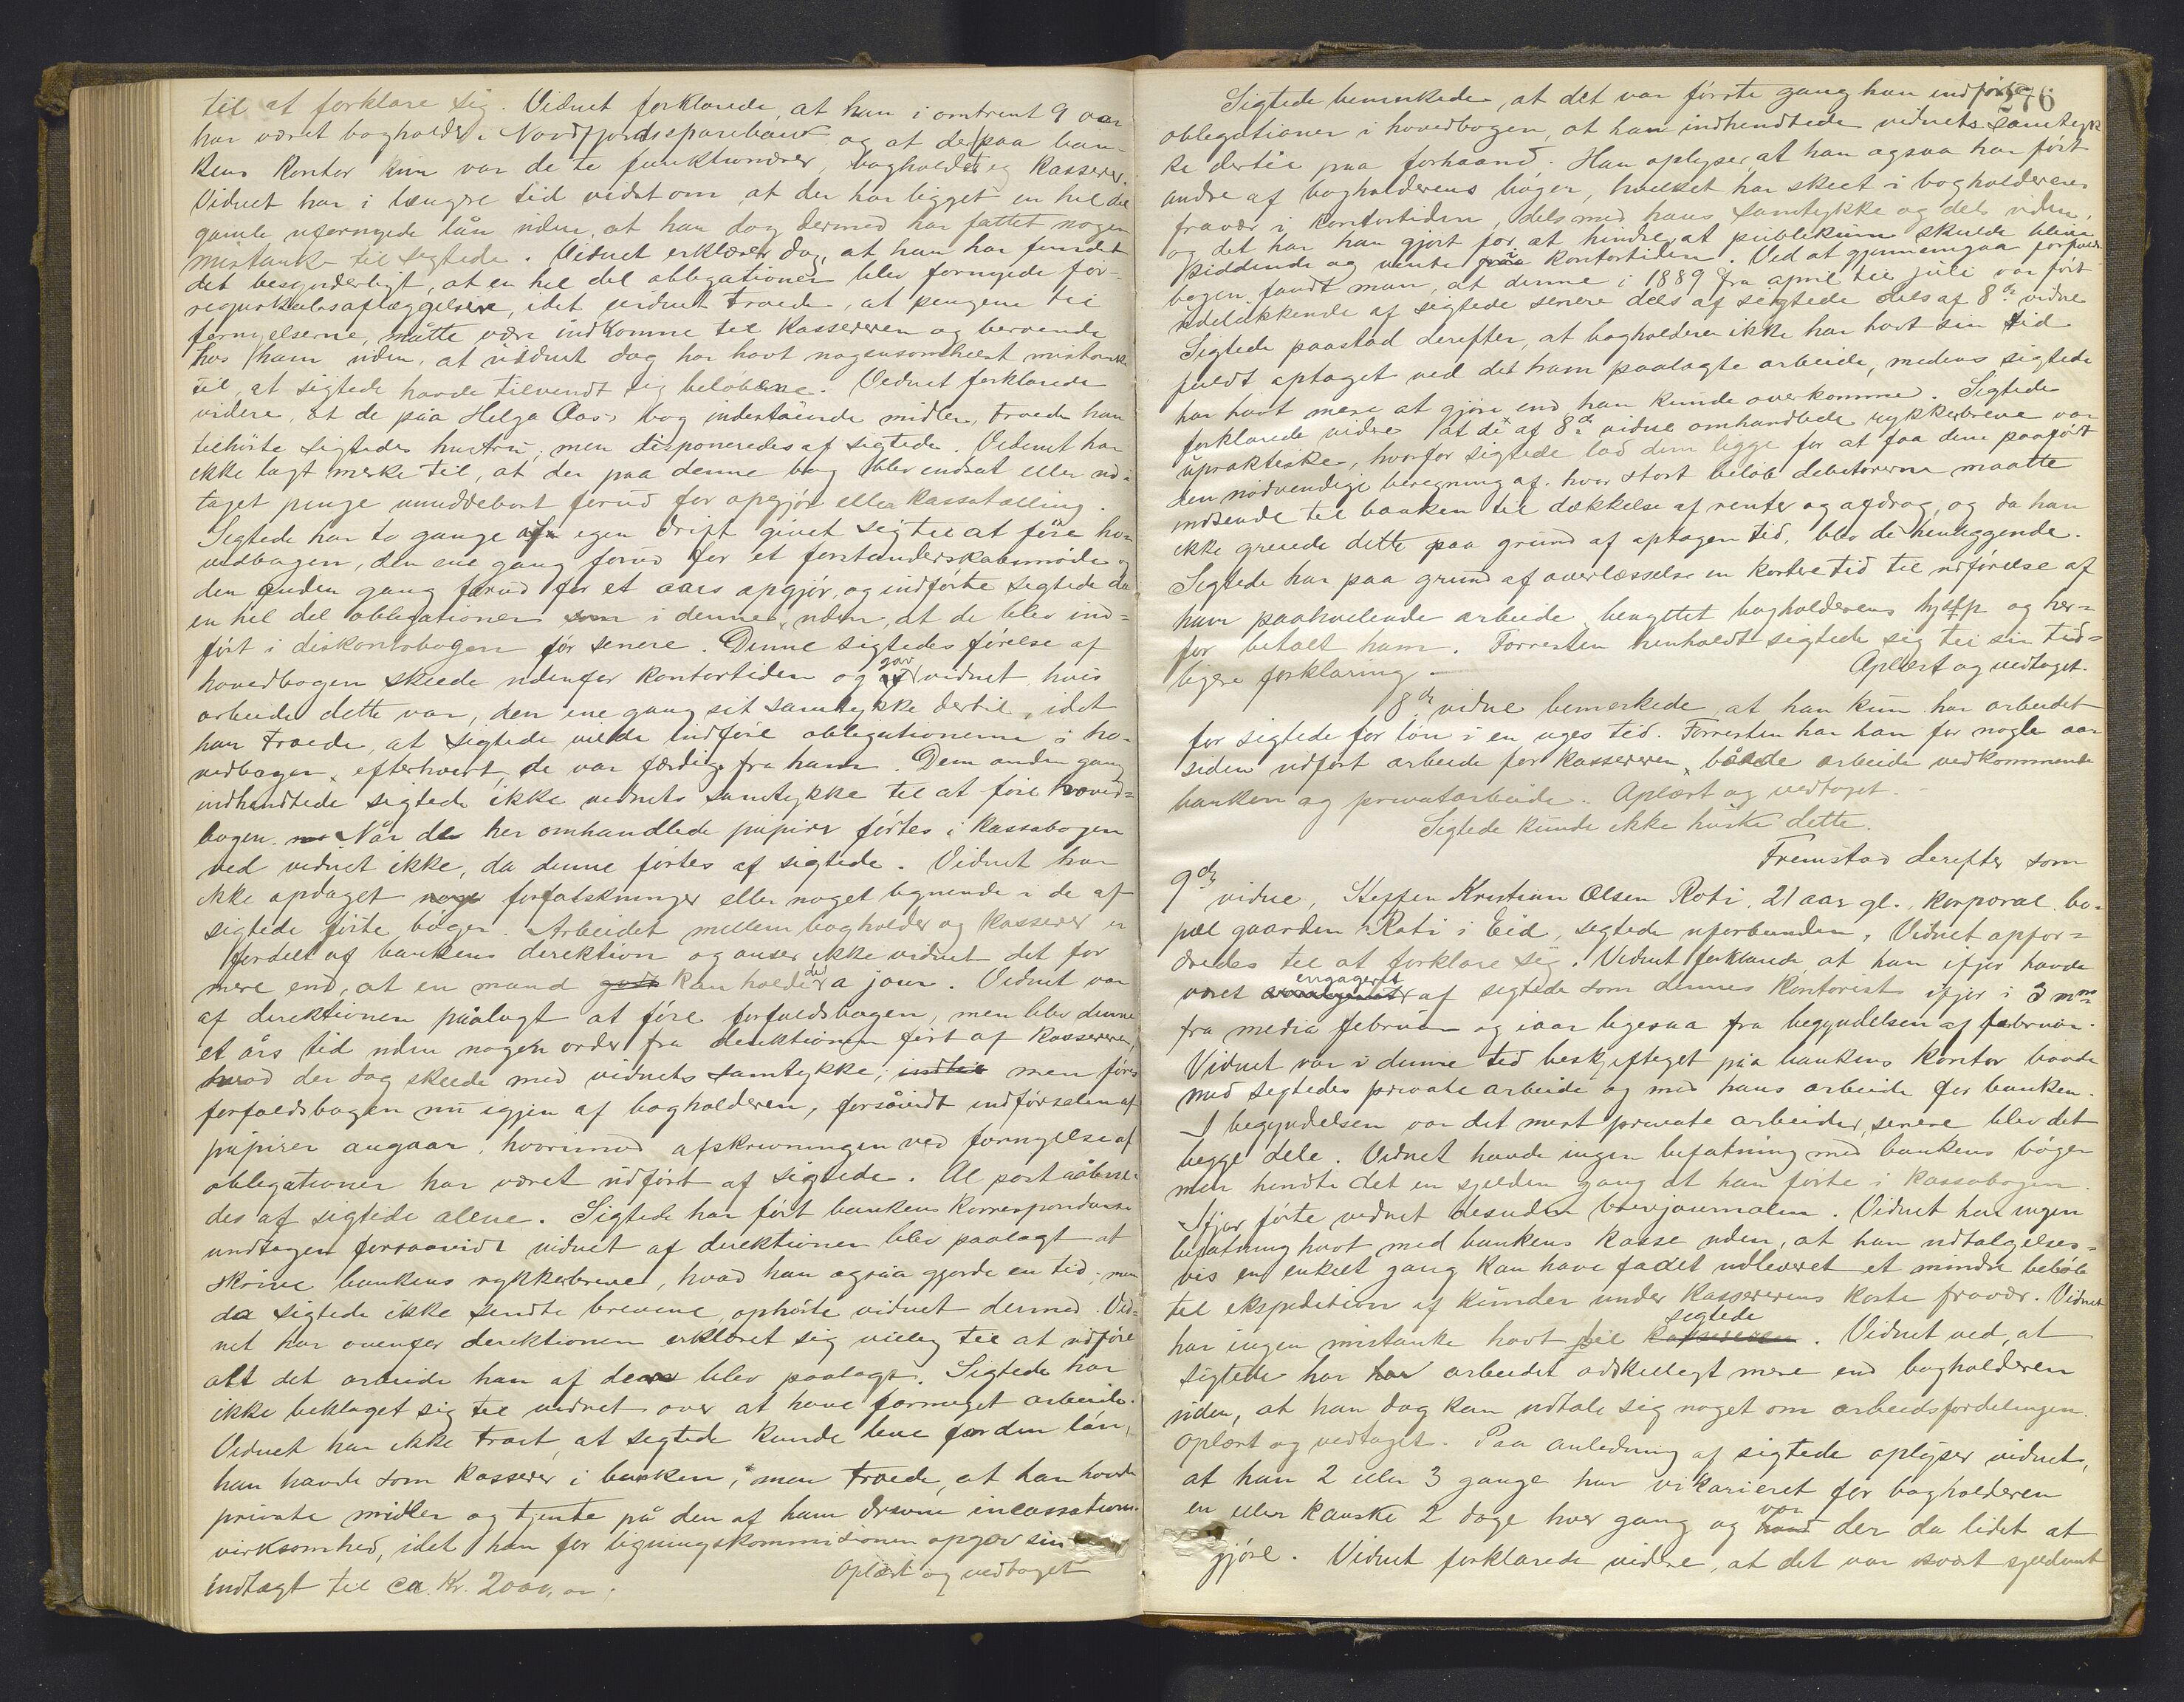 til at forklare sig. Vidnet forklarede, at han i omtrent 9 aar
har været bogholder i Nordfjords sparebank og at der paa ban-
kens kontor kun var de to funktionærer, bogholder og kasserer.
Vidnet har i længre tid vidst om at der har ligget en hel del
gamle ufornyede lån uden, at han dog dermed har fattet nogen
mistanke til sigtede. Vidnet erklærer dog, at han har fundet
det besynderligt, at en hel del obligationer blev fornyede før
regnskabsaflæggelsen, idet vidnet troede, at pengene til
fornyelserne, måtte være indkomne til kassereren og beroende
hos ham uden, at vidnet dog har havt nogensomhelst mistanke
til, at sigtede havde tilvendt sig beløbene. Vidnet forklarede
videre, at de paa Helga Aas's bog indestående midler, troede han
tilhørte sigtedes hustru, men disponeredes af sigtede. Vidnet har
ikke lagt merke til, at der paa denne bog blev indsat eller ud-
taget penge umiddelbart forud for opgjør eller kassatælling.
Sigtede har to gange af egen drift givet sig til at føre ho-
vedbogen, den ene gang forud for et forstanderskabsmøde og
den anden gang forud for et aars opgjør, og indførte sigtede da
en hel del obligationer som i denne, uden, at de blev ind-
ført i diskontobogen før senere. Denne sigtedes førelse af
hovedbogen skeede udenfor kontortiden og gav vidnet, hvis
arbeide dette var, den ene gang sit samtykke dertil, idet
han troede, at sigtede vilde indføre obligationerne i ho-
vedbogen, efterhvert de var færdige fra ham. Den anden gang
indhendtede sigtede ikke vidnets samtykke til at føre hoved-
bogen. Når de her omhandlede papirer førtes i kassabogen
ved vidnet ikke, da denne førtes af sigtede. Vidnet har
ikke opdaget nogen forfalskninger eller noget lignende i de af
sigtede førte bøger. Arbeidet mellem bogholder og kasserer er
fordelt af bankens direktion og anser ikke vidnet det for
mere end, at en mand godt kan holde det a jour. Vidnet var
af direktionen pålagt at føre forfaldsbogen, men blev denne
et års tid uden nogen order fra direktionen ført af kassereren,
hvad der dog skeede med vidnets samtykke; indtil men føres
forfaldsbogen nu igjen af bogholderen, forsåvidt indførselen af
papirer angaar, hvorimod afskrivningen ved fornyelse af
obligationer har været udført af sigtede. Al post aabne-
des af sigtede alene. Sigtede har ført bankens korrespondanse
undtagen forsaavidt vidnet af direktionen blev paalagt at
skrive bankens rykkerbreve, hvad han ogsaa gjorde en tid, men
da sigtede ikke sendte brevene, ophørte vidnet dermed. Vid-
net har ovenfor direktionen erklæret sig villig til at udføre
alt det arbeide han af denne blev paalagt. Sigtede har
ikke beklaget sig til vidnet over at have formeget arbeide.
Vidnet har ikke troet, at sigtede kunde leve for den løn,
han havde som kasserer i banken, men troede, at han havde
private midler og tjente på den af ham drevne incassations-
virksomhed, idet han for ligningskommissionen opgav sin
indtægt til ca. Kr. 2000,00. Oplæst og vedtaget
276
Sigtede bemerkede, at det var første gang han indførte
obligationer i hovedbogen, at han indhendtede vidnets samtyk-
ke dertil paa forhaand. Han oplyser, at han ogsaa har ført
andre af bogholderens bøger, hvilket har skeet i bogholderens
fravær i kontortiden, dels med hans samtykke og dels uden,
og det har han gjort for at hindre, at publikum skulde blive
siddende og vente kontortiden. Ved at gjennemgaa forfalds-
bogen fandt man, at denne i 1889 fra april til juli var ført
udelukkende af sigtede senere dels af sigtede dels af 8de vidne.
Sigtede paastod derefter, at bogholderen ikke har havt sin tid
fuldt optaget ved det ham paalagte arbeide, medens sigtede
har havt mere at gjøre end han kunde overkomme. Sigtede
forklarede videre at de af 8de vidne omhandlede rykkerbreve var
upraktiske, hvorfor sigtede lod dem ligge for at faa dem paaført
den nødvendige beregning af hvor stort beløb debitorerne maatte
indsende til banken til dækkelse af renter og afdrag, og da han
ikke greiede dette paa grund af optagen tid, blev de henliggende.
Sigtede har paa grund af overlæsselse en kortere tid til udførelse af
ham paahvilende arbeide benyttet bogholderens hjælp og her-
for betalt ham. Forresten henholdt sigtede sig til sin tid-
ligere forklaring. – Oplæst og vedtaget.
8de vidne bemerkede, at han kun har arbeidet
for sigtede for løn i en uges tid. Forresten har han for nogle aar
siden udført arbeide for kassereren, både arbeide vedkommende
banken og privatarbeide. Oplæst og vedtaget. –
Sigtede kunde ikke huske dette.
Fremstod derefter som
9de vidne, Steffen Kristian Olsen Roti, 21 aar gl., korporal, bo-
pæl gaarden Roti i Eid, sigtede uforbunden. Vidnet opfor-
dredes til at forklare sig. Vidnet forklarede, at han ifjor havde
været engageret af sigtede som dennes kontorist ifjor i 3 mdr
fra medio februar og iaar ligesaa fra begyndelsen af februar.
Vidnet var i denne tid beskjeftiget paa bankens kontor baade
med sigtedes private arbeide og med hans arbeide for banken.
I begyndelsen var det mest private arbeider, senere blev det
begge dele. Vidnet havde ingen befatning med bankens bøger
men hendte det en sjelden gang at han førte i kassabogen.
Ifjor førte vidnet desuden brevjournalen. Vidnet har ingen
befatning havt med bankens kasse uden, at han undtagelses-
vis en enkelt gang kan have faaet udleveret et mindre beløb
til ekspedition af kunder under kassererens korte fravær. Vidnet
har ingen mistanke havt til sigtede. Vidnet ved, at
sigtede har arbeidet adskilligt mere end bogholderen
uden, at han dog kan udtale sig noget om arbeidsfordelingen.
Oplæst og vedtaget. Paa anledning af sigtede oplyser vidnet,
at han 2 eller 3 gange har vikarieret for bogholderen
en eller kanske 2 dage hver gang og var der da lidet at
gjøre. Vidnet forklarede videre, at det var svært sjeldent